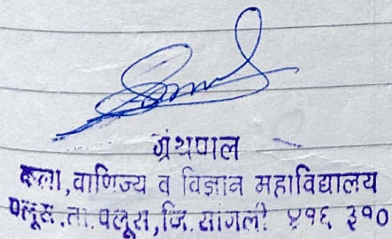 ग्रंथपाल
कला, वाणिज्य व विज्ञान महाविद्यालय
पलूस, ता. पलूस, जि. सांगली. ४१६ ३१०